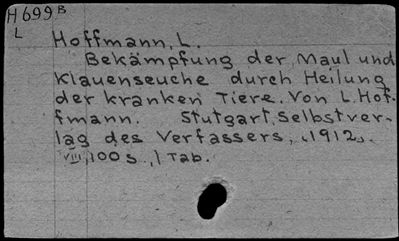 H699B
L
Hoffmann, L.
Bekämpfung der Maul und
Klauenseuche durch Heilung
der kranken Tiere. Von L. Hof-
fmann. Stutgart, Selbstver-
lag des Verfassers, 1912.
VIII, 100 s., 1 Tab.